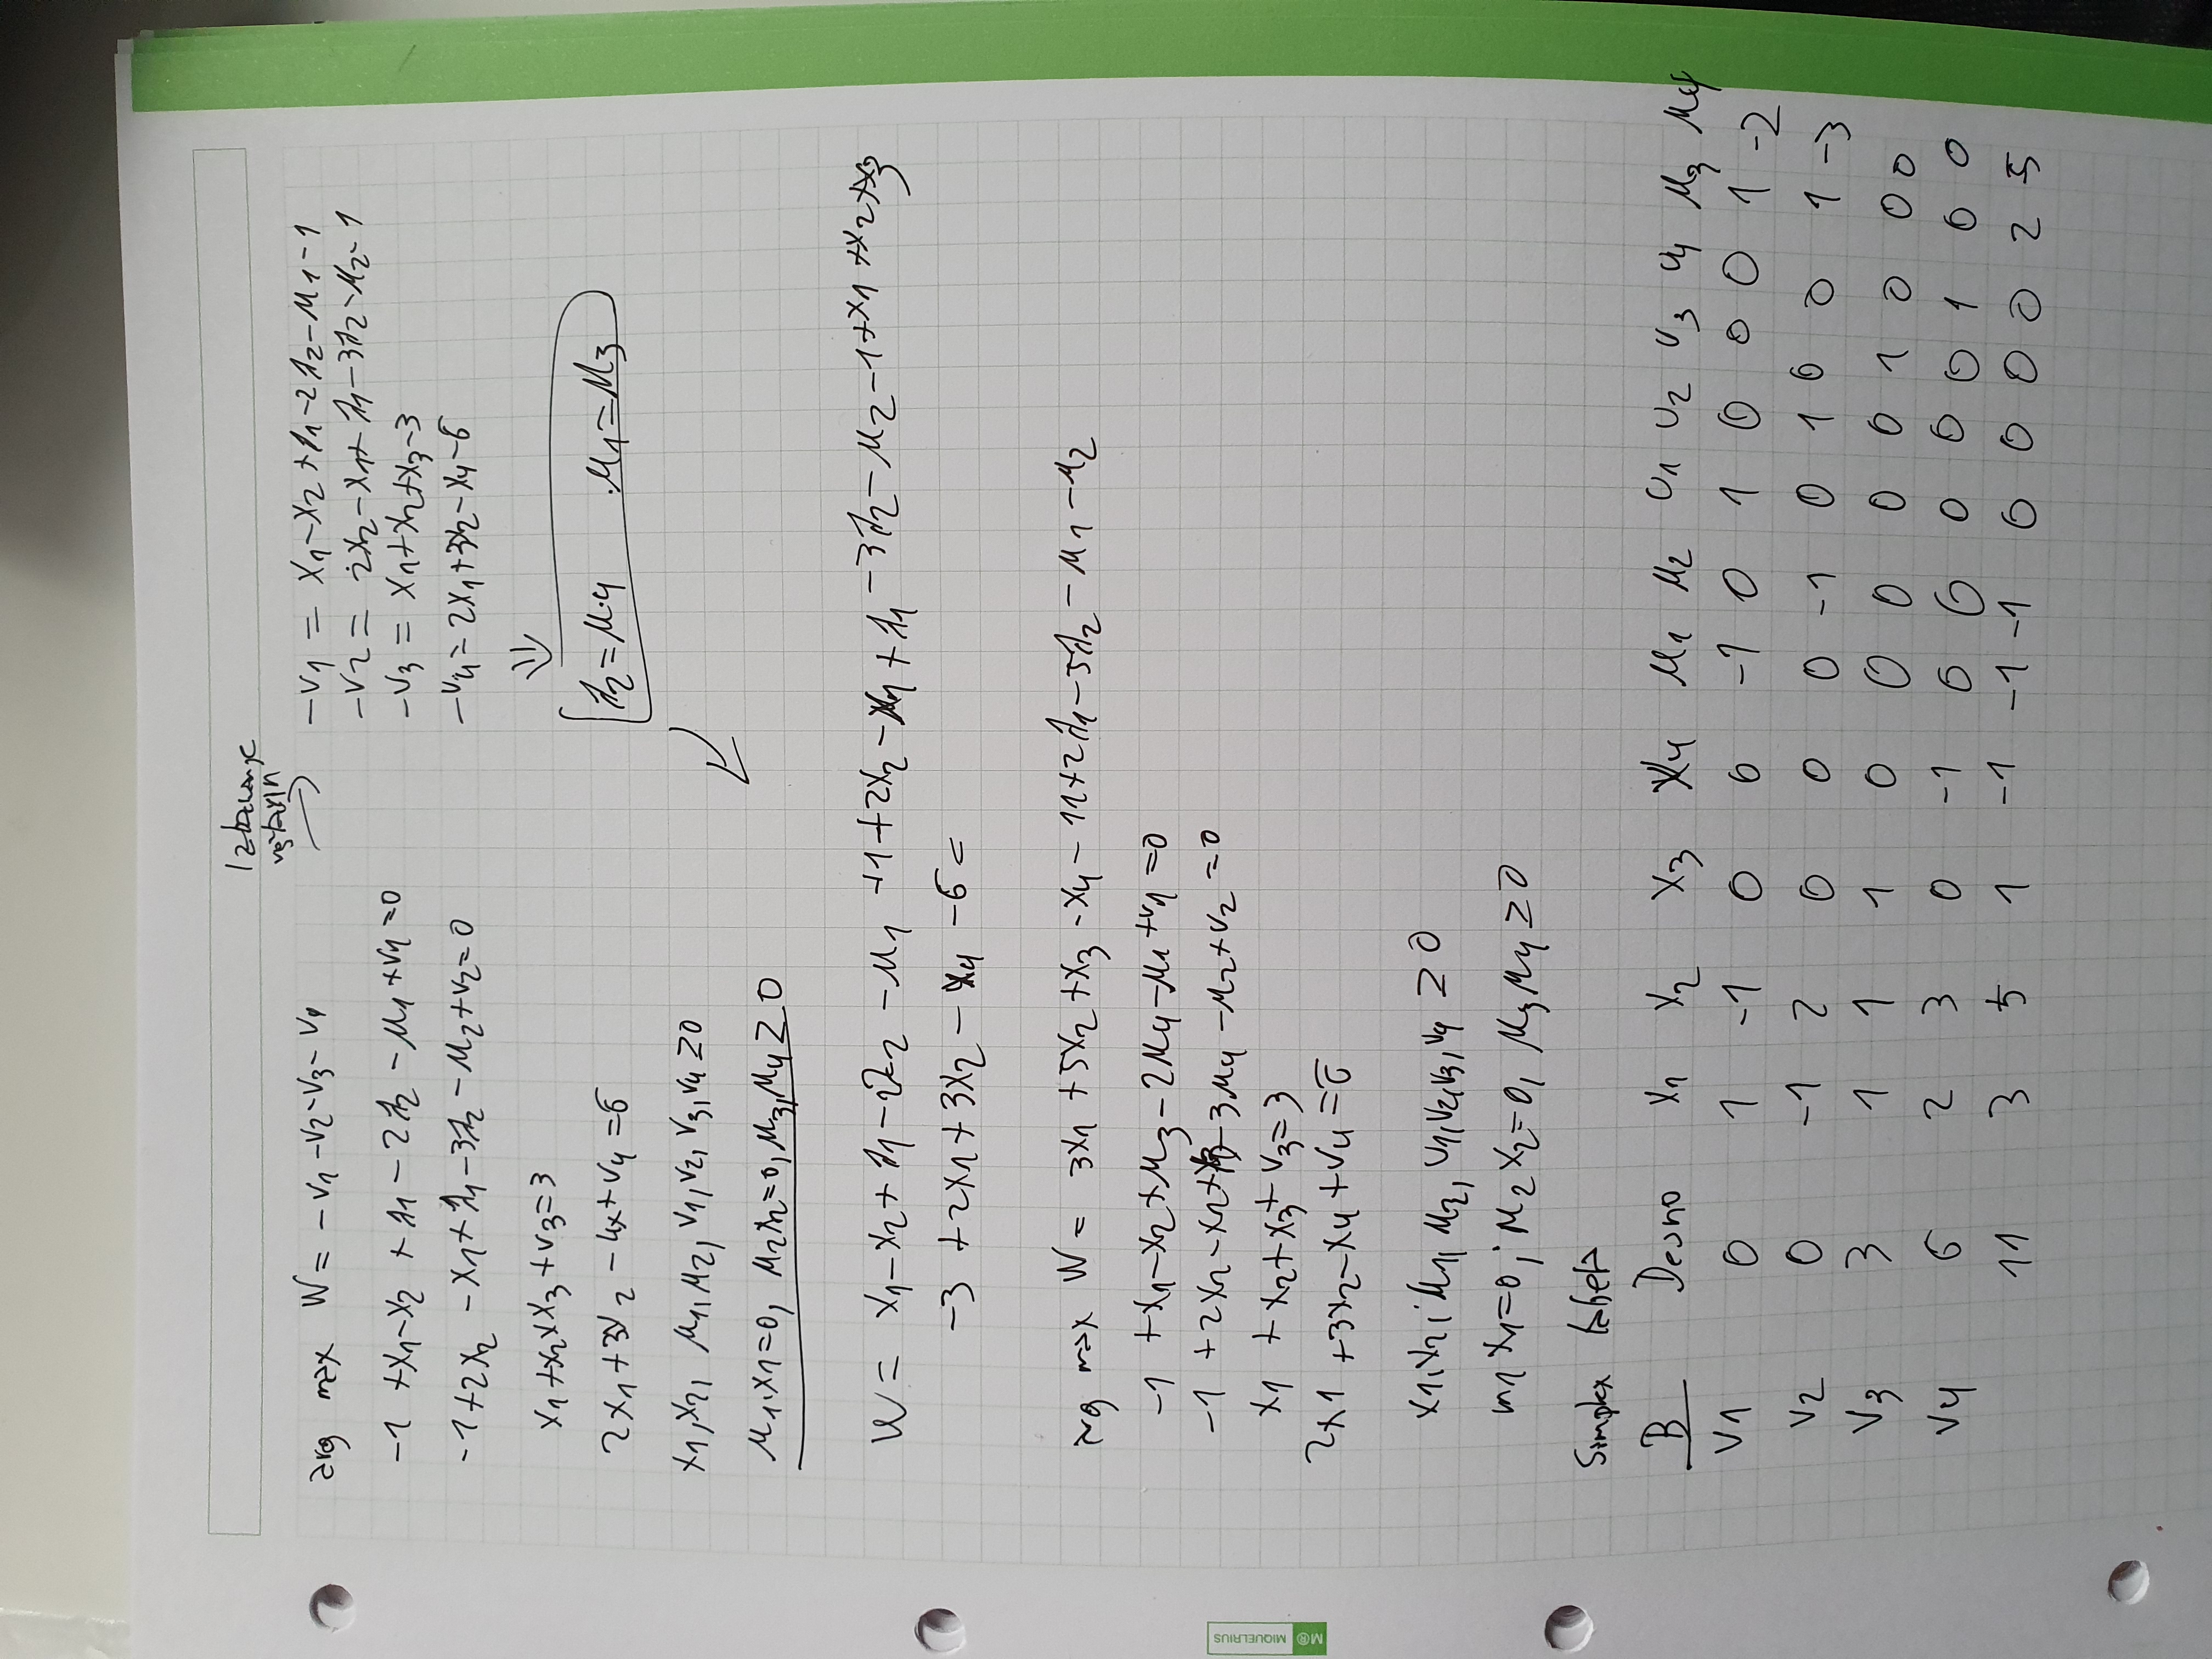 arg max W = -v1 -v2 -v3 - v4
-1 +x1-x2 + λ1 - 2λ2 - μ1 +v1 =0
-1+2x2 -x1+ λ1-3λ2 -μ2+v2=0
x1+x2+x3+v3=3
2x1+3x2 -4x+v4=6
x1,x2, μ1,μ2, v1,v2, v3,v4 ≥0
μ1·x1=0, μ2x2=0, μ3,μ4 ≥ 0
-v1 = x1-x2+λ1-2λ2-μ1-1
-v2 = 2x2-x1+ λ1-3λ2-μ2-1
-v3 = x1+x2+x3-3
-v4=2x1+3x2-x4-6
⇓
λ2=μ4 μ1=μ3
W = x1-x2+λ1-2λ2 -μ1 +1+2x2-x1+λ1-3λ2-μ2-1+x1+x2+x3
-3 +2x1+3x2-x4 -6=
arg max W = 3x1 +5x2+x3-x4-11+2λ1-5λ2-μ1-μ2
-1 +x1-x2+μ3-2μ4-μ1+v1=0
-1 +2x2-x2+μ3-3μ4-μ2+v2=0
x1 +x2+x3+v3=3
2x1 +3x2-x4+v4=6
x1,x2, μ1, μ2, v1,v2,v3,v4 ≥ 0
m1 x1=0; μ2 x2=0, μ3 μ4 ≥0
Simplex tabela
B Desno x1 x2 x3 x4 μ1 μ2 v1 v2 v3 v4 μ3 μ4
v1 0 1 -1 0 0 -1 0 1 0 0 0 1 -2
v2 0 -1 2 0 0 0 -1 0 1 0 0 1 -3
v3 3 1 1 1 0 0 0 0 0 1 0 0 0
v4 6 2 3 0 -1 0 0 0 0 0 1 0 0
11 3 5 1 -1 -1 -1 0 0 0 0 2 5
M® MIQUELRIUS